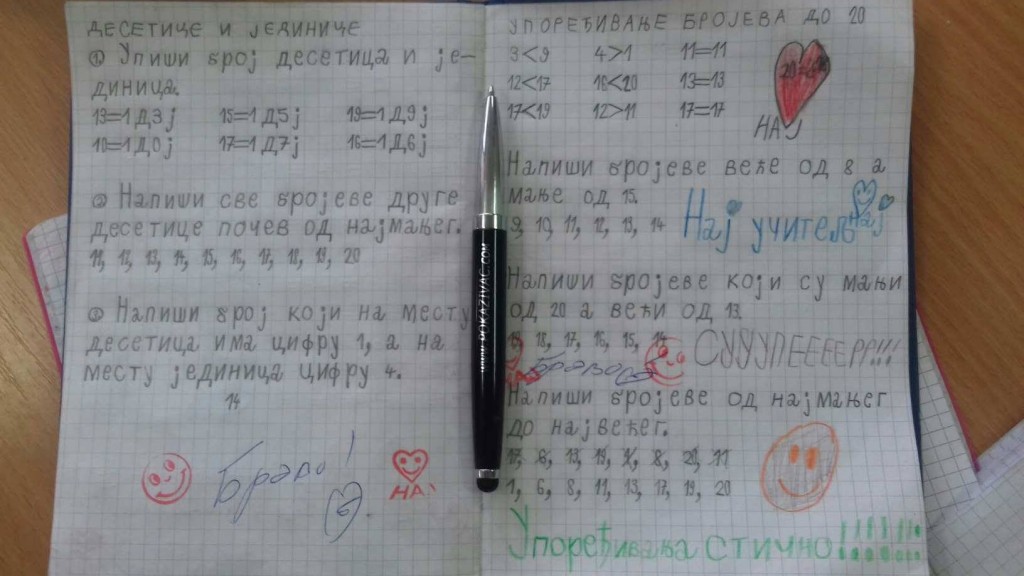 ДЕСЕТИЦЕ И ЈЕДИНИЦЕ
① Упиши број десетица и је-
диница.
13=1Д3Ј 15=1Д5Ј 19=1Д9Ј
10=1Д0Ј 17=1Д7Ј 16=1Д6Ј
② Напиши све бројеве друге
десетице почев од најмањег.
11, 12, 13, 14, 15, 16, 17, 18, 19, 20
③ Напиши број који на месту
десетица има цифру 1, а на
месту јединица цифру 4.
14
Браво!
НАЈ
УПОРЕЂИВАЊЕ БРОЈЕВА ДО 20
3<9 4>1 11=11
12<17 10<20 13=13
17<19 12>11 17=17
НАЈ
Напиши бројеве веће од 8 а
мање од 15.
9, 10, 11, 12, 13, 14
Нај учитељ
Нај
Напиши бројеве који су мањи
од 20 а већи од 13.
19, 18, 17, 16, 15, 14
СУУУПЕЕЕЕРР!!!
Браво
Напиши бројеве од најмањег
до највећег.
17, 6, 13, 19, 1, 8, 20, 11
1, 6, 8, 11, 13, 17, 19, 20
Упоређивања стично!!!!!!!
WWW.POKAZIVAC.COM